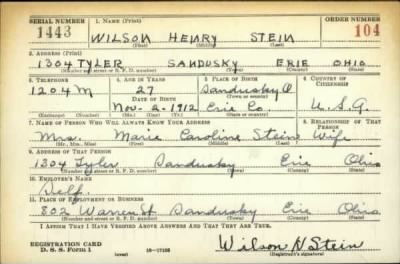 SERIAL NUMBER 1. NAME (Print) ORDER NUMBER
1443 WILSON HENRY STEIN 104
(First) (Middle) (Last)
2. ADDRESS (Print)
1304 TYLER SANDUSKY ERIE OHIO
(Number and street or R. F. D. number) (Town) (County) (State)
3. TELEPHONE 4. AGE IN YEARS 5. PLACE OF BIRTH 6. COUNTRY OF CITIZENSHIP
1204 M 27 Sandusky O.
DATE OF BIRTH (Town or county)
Nov. 2-1912 Erie Co. U.S.A.
(Mo.) (Day) (Yr.) (State or country)
7. NAME OF PERSON WHO WILL ALWAYS KNOW YOUR ADDRESS 8. RELATIONSHIP OF THAT PERSON
Mrs. Marie Caroline Stein Wife
(Mr., Mrs., Miss) (First) (Middle) (Last)
9. ADDRESS OF THAT PERSON
1304 Tyler Sandusky Erie Ohio
(Number and street or R. F. D. number) (Town) (County) (State)
10. EMPLOYER'S NAME
Self.
11. PLACE OF EMPLOYMENT OR BUSINESS
802 Warren St Sandusky Erie Ohio
(Number and street or R. F. D. number) (Town) (County) (State)
I AFFIRM THAT I HAVE VERIFIED ABOVE ANSWERS AND THAT THEY ARE TRUE.
REGISTRATION CARD
D. S. S. Form 1 Wilson H Stein
(Registrant's signature)